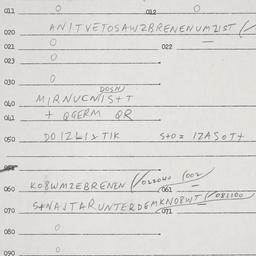 011 0 012 0
020 ANITVETOSAWZBRENENUMZIST (/
021 0 022 —
023 0
030 0
DOSN
040 MIRNUCNIS+T
041 + QGERM QR
050 DOIZLISTIK S+O = IZASOTT
060 KOBWMZEBRENEN (/022040 (002
061 —
070 S+NAITARUNTERDEMKNOBWT (/081100
071 —
080 0
090 0